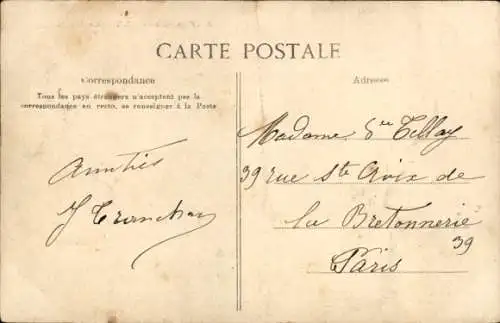 CARTE POSTALE
Correspondance
Tous les pays étrangers n'acceptent pas la
correspondance au recto, se renseigner à la Poste
Amitiés
J
Adresse
Madame
39 rue Ste Croix de
la Bretonnerie
39
Paris